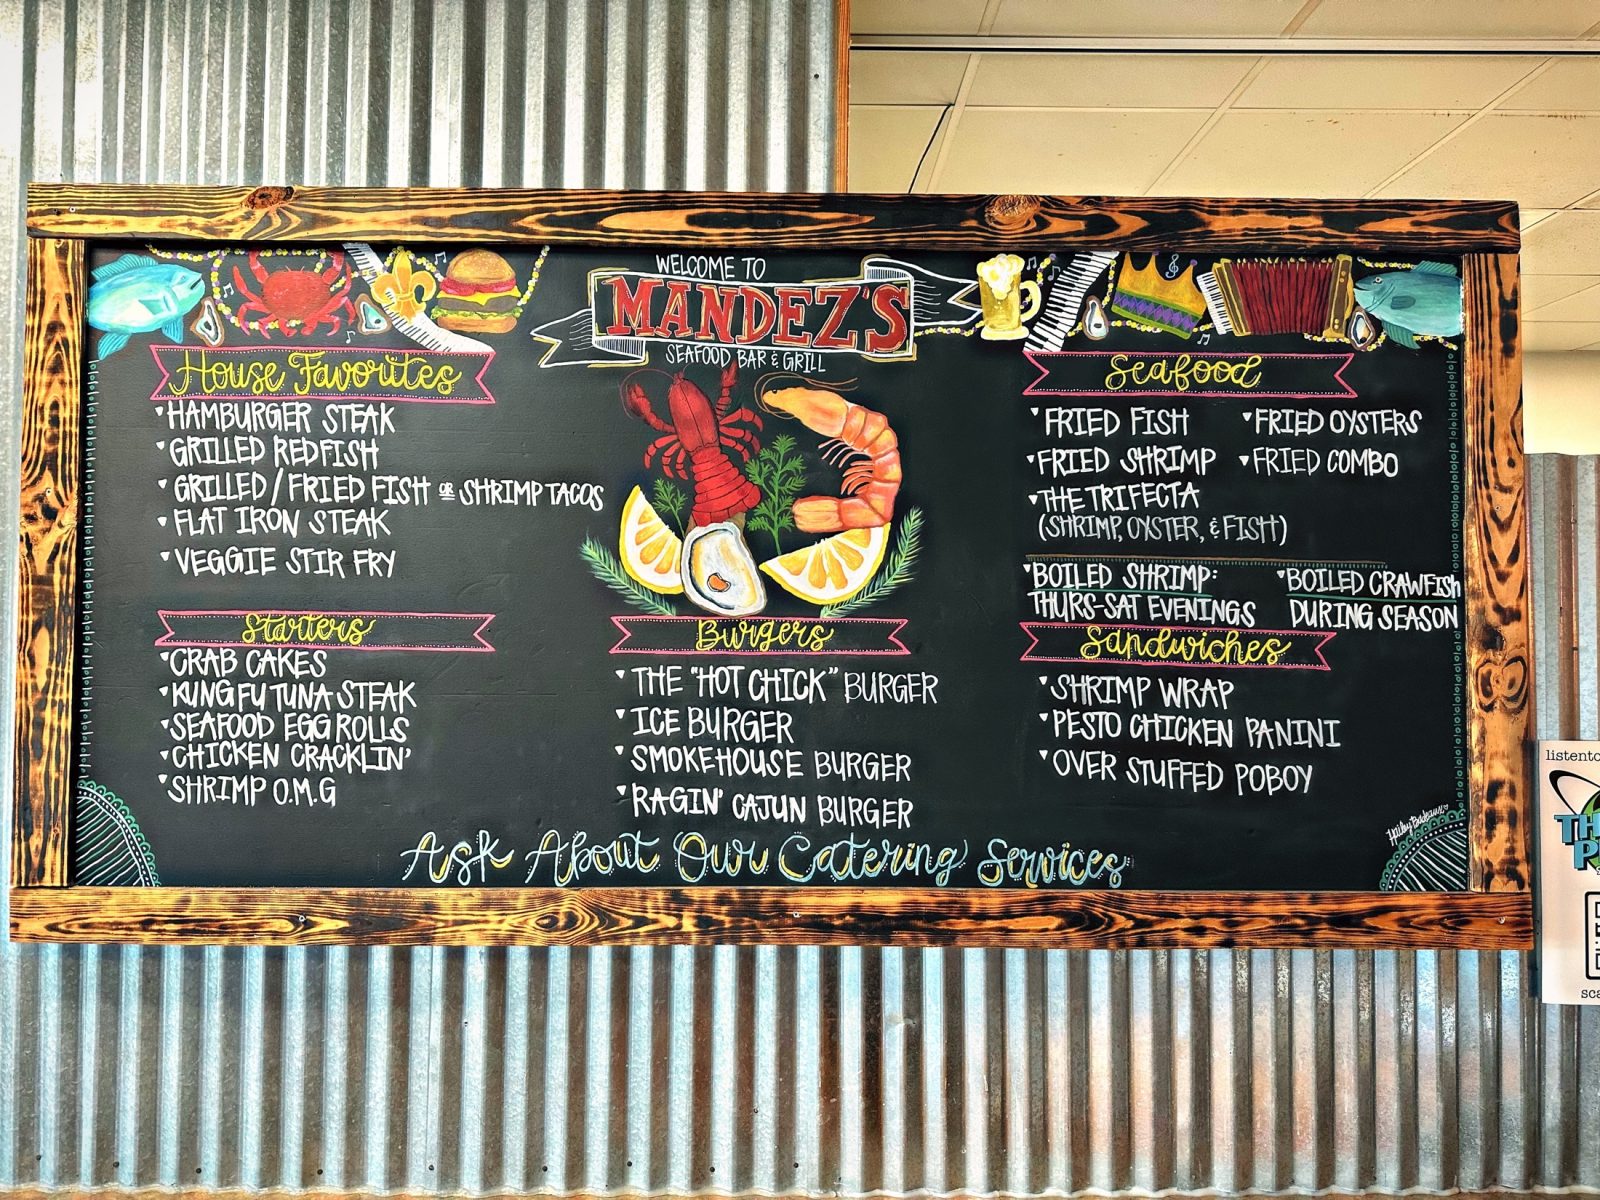 WELCOME TO
MANDEZ'S
SEAFOOD BAR & GRILL
House Favorites
HAMBURGER STEAK
GRILLED REDFISH
GRILLED/FRIED FISH OR SHRIMP TACOS
FLAT IRON STEAK
VEGGIE STIR FRY
Starters
CRAB CAKES
KUNG FU TUNA STEAK
SEAFOOD EGG ROLLS
CHICKEN CRACKLIN'
SHRIMP O.M.G
Burgers
THE "HOT CHICK" BURGER
ICE BURGER
SMOKEHOUSE BURGER
RAGIN' CAJUN BURGER
Seafood
FRIED FISH
FRIED OYSTERS
FRIED SHRIMP
FRIED COMBO
THE TRIFECTA
(SHRIMP, OYSTER, & FISH)
BOILED SHRIMP:
THURS-SAT EVENINGS
BOILED CRAWFISH
DURING SEASON
Sandwiches
SHRIMP WRAP
PESTO CHICKEN PANINI
OVER STUFFED POBOY
Ask About Our Catering Services
listento